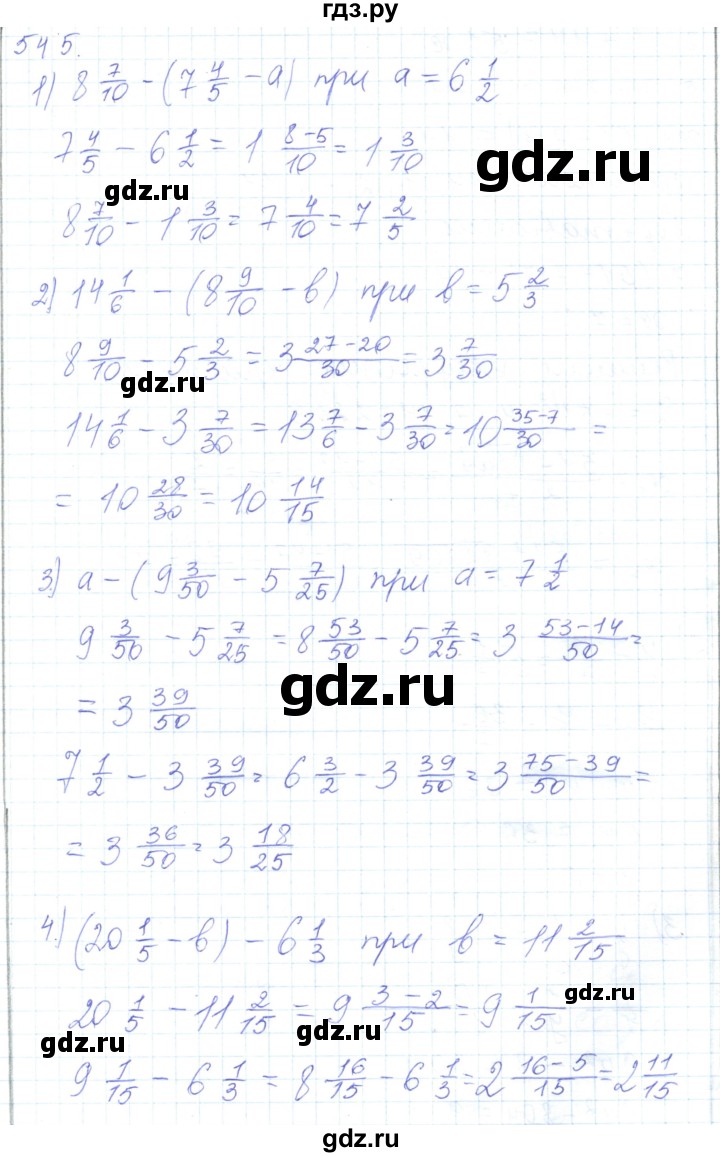 гдз.ру
545.
1) 8 7/10 - (7 4/5 - a) при a = 6 1/2
7 4/5 - 6 1/2 = 1 (8-5)/10 = 1 3/10
gdz.ru
gdz.ru
8 7/10 - 1 3/10 = 7 4/10 = 7 2/5
2) 14 1/6 - (8 9/10 - в) при в = 5 2/3
8 9/10 - 5 2/3 = 3 (27-20)/30 = 3 7/30
gdz.ru
gdz.ru
14 1/6 - 3 7/30 = 13 7/6 - 3 7/30 = 10 (35-7)/30 =
= 10 28/30 = 10 14/15
3) a - (9 3/50 - 5 7/25) при a = 7 1/2
9 3/50 - 5 7/25 = 8 53/50 - 5 7/25 = 3 (53-14)/50 =
gdz.ru
= 3 39/50
7 1/2 - 3 39/50 = 6 3/2 - 3 39/50 = 3 (75-39)/50 =
= 3 36/50 = 3 18/25
4) (20 1/5 - в) - 6 1/3 при в = 11 2/15
20 1/5 - 11 2/15 = 9 (3-2)/15 = 9 1/15
gdz.ru
gdz.ru
gdz.ru
9 1/15 - 6 1/3 = 8 16/15 - 6 1/3 = 2 (16-5)/15 = 2 11/15
gdz.ru